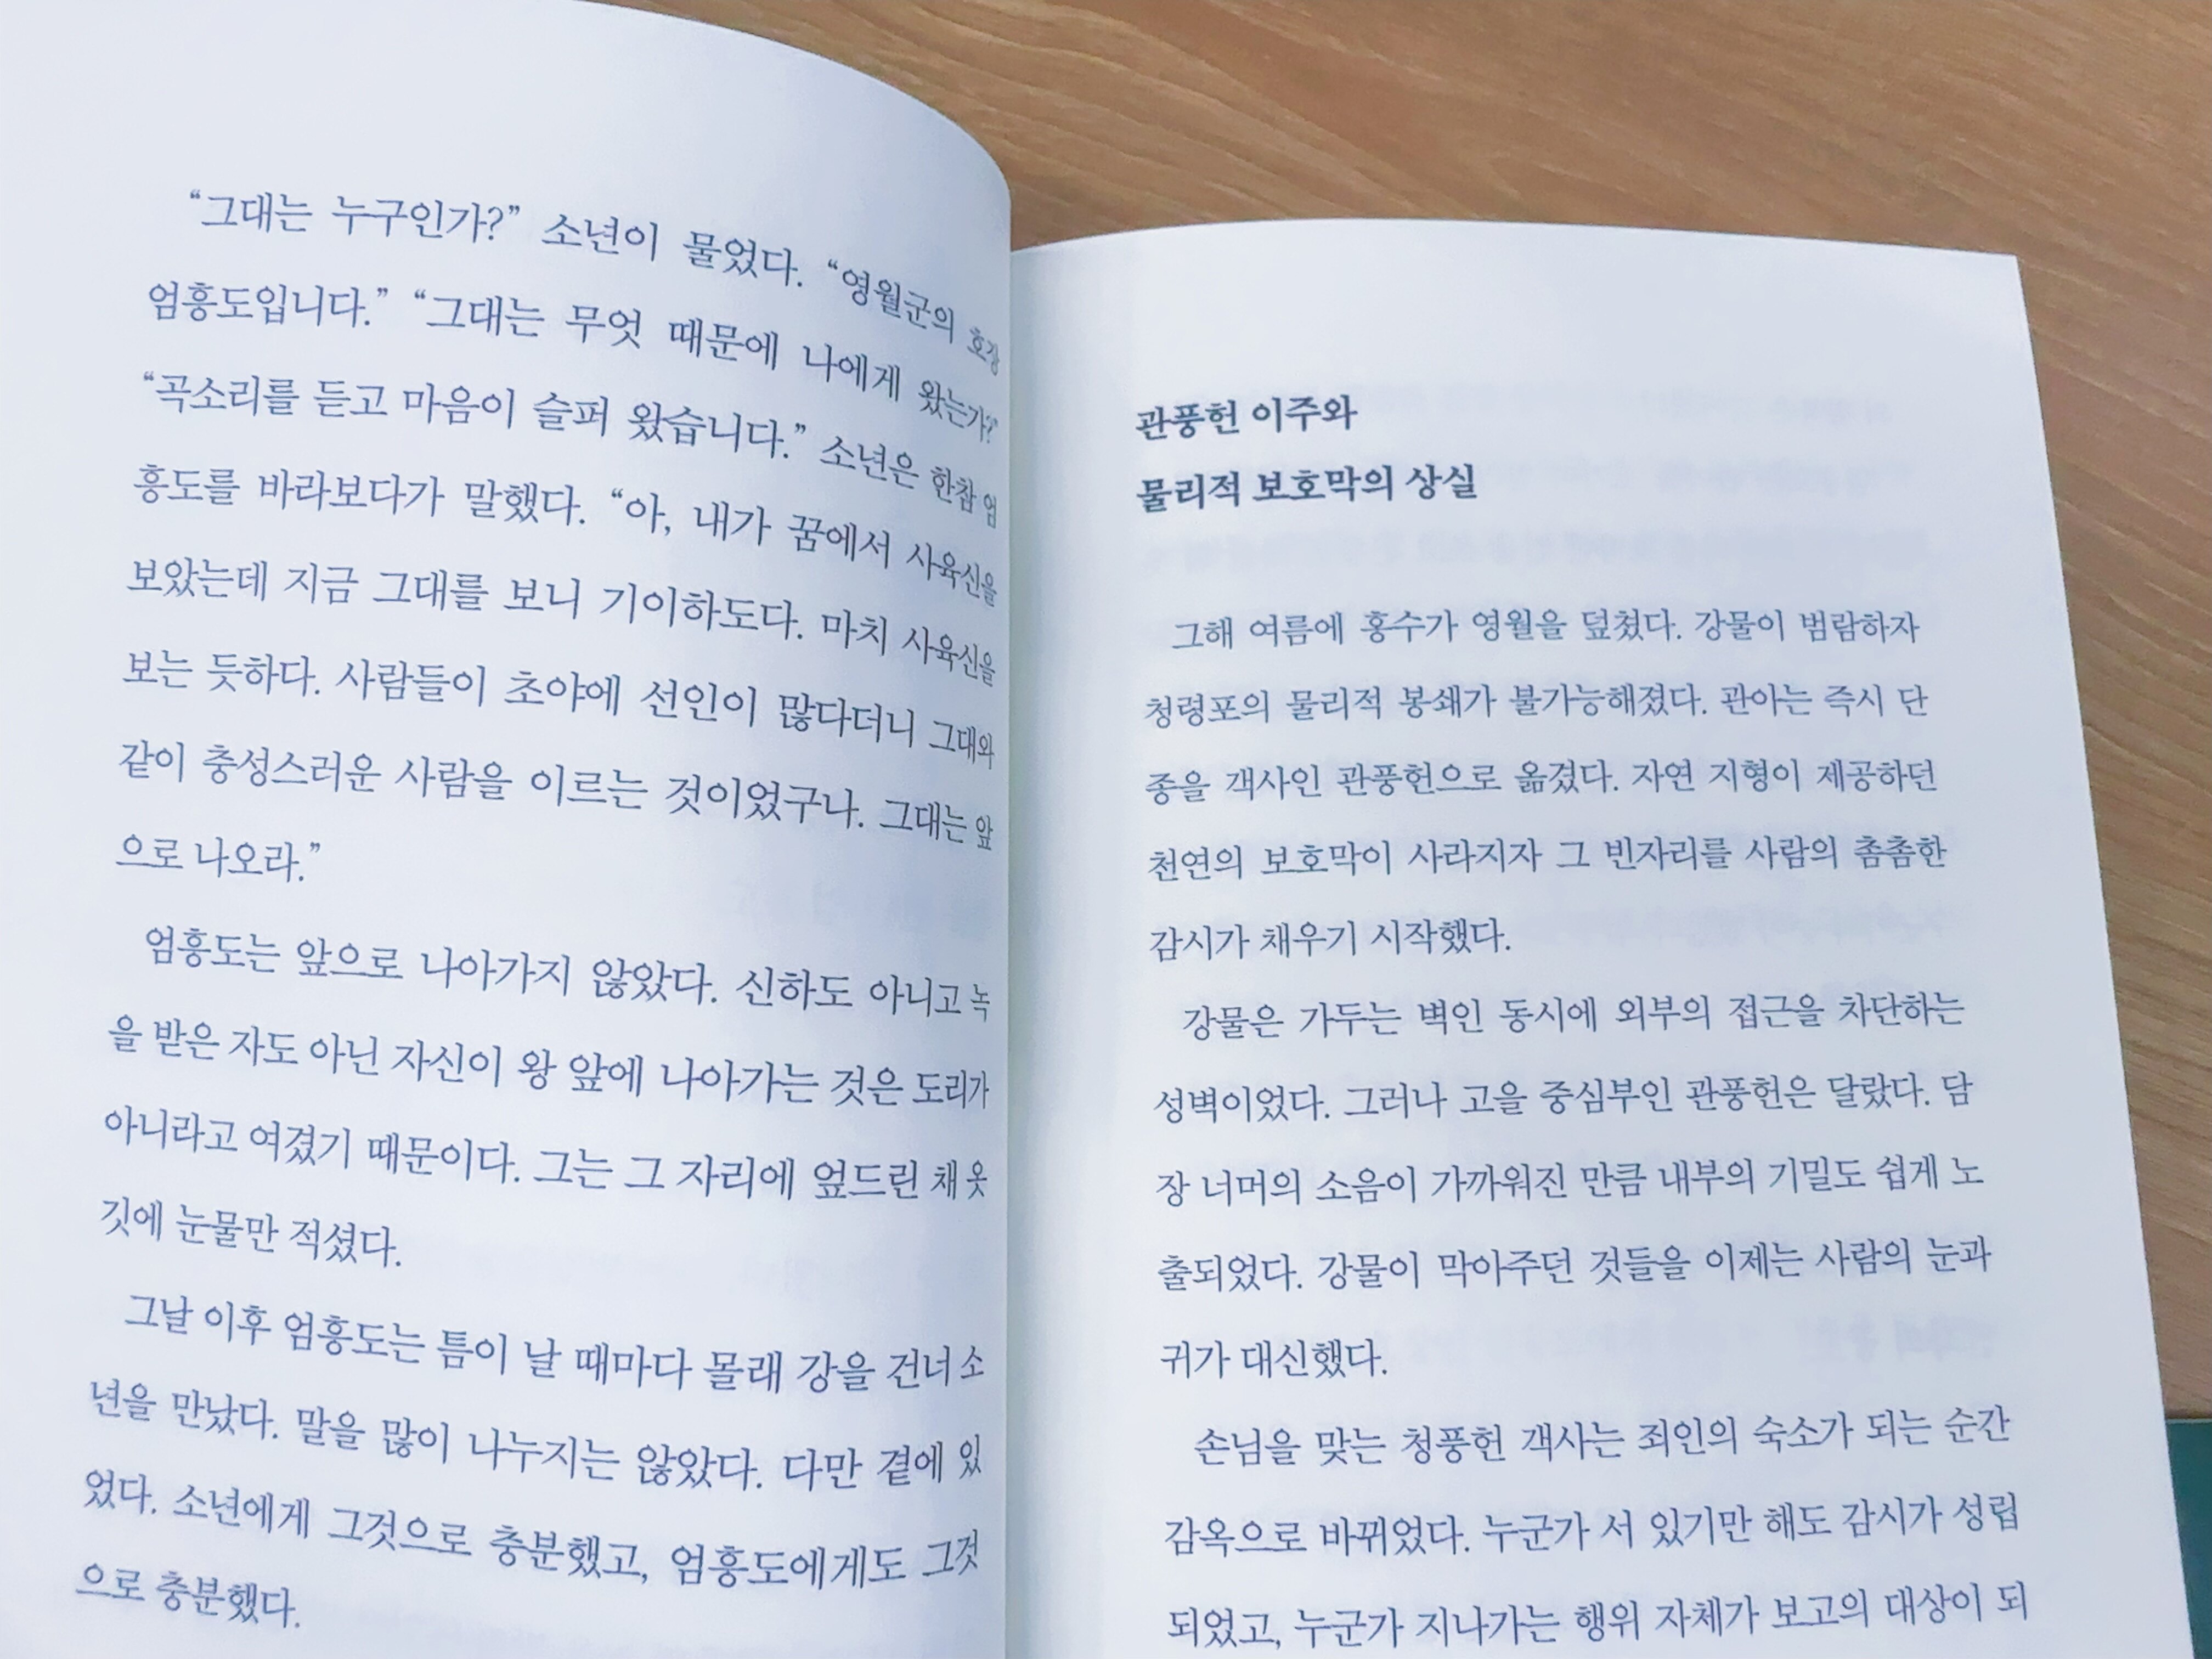 “그대는 누구인가?” 소년이 물었다. “영월군의 호장
엄흥도입니다.” “그대는 무엇 때문에 나에게 왔는가?
“곡소리를 듣고 마음이 슬퍼 왔습니다.” 소년은 한참 엄
흥도를 바라보다가 말했다. “아, 내가 꿈에서 사육신을
보았는데 지금 그대를 보니 기이하도다. 마치 사육신을
보는 듯하다. 사람들이 초야에 선인이 많다더니 그대와
같이 충성스러운 사람을 이르는 것이었구나. 그대는 앞
으로 나오라.”
엄흥도는 앞으로 나아가지 않았다. 신하도 아니고 녹
을 받은 자도 아닌 자신이 왕 앞에 나아가는 것은 도리가
아니라고 여겼기 때문이다. 그는 그 자리에 엎드린 채 옷
깃에 눈물만 적셨다.
그날 이후 엄흥도는 틈이 날 때마다 몰래 강을 건너 소
년을 만났다. 말을 많이 나누지는 않았다. 다만 곁에 있
었다. 소년에게 그것으로 충분했고, 엄흥도에게도 그것
으로 충분했다.
관풍헌 이주와
물리적 보호막의 상실
그해 여름에 홍수가 영월을 덮쳤다. 강물이 범람하자
청령포의 물리적 봉쇄가 불가능해졌다. 관아는 즉시 단
종을 객사인 관풍헌으로 옮겼다. 자연 지형이 제공하던
천연의 보호막이 사라지자 그 빈자리를 사람의 촘촘한
감시가 채우기 시작했다.
강물은 가두는 벽인 동시에 외부의 접근을 차단하는
성벽이었다. 그러나 고을 중심부인 관풍헌은 달랐다. 담
장 너머의 소음이 가까워진 만큼 내부의 기밀도 쉽게 노
출되었다. 강물이 막아주던 것들을 이제는 사람의 눈과
귀가 대신했다.
손님을 맞는 청풍헌 객사는 죄인의 숙소가 되는 순간
감옥으로 바뀌었다. 누군가 서 있기만 해도 감시가 성립
되었고, 누군가 지나가는 행위 자체가 보고의 대상이 되